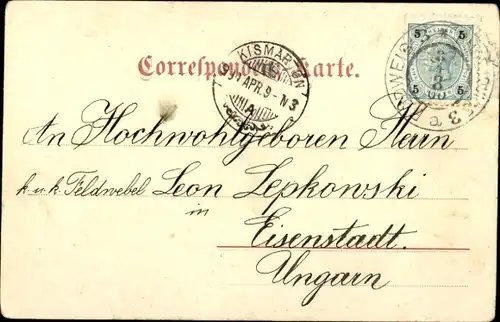 Correspondenz-Karte.
KISMARTON
APR. 9 - N3
5 5
5 5
An Hochwohlgeboren Herrn
k. u. k. Feldwebel Leon Lepkowski
in
Eisenstadt.
Ungarn